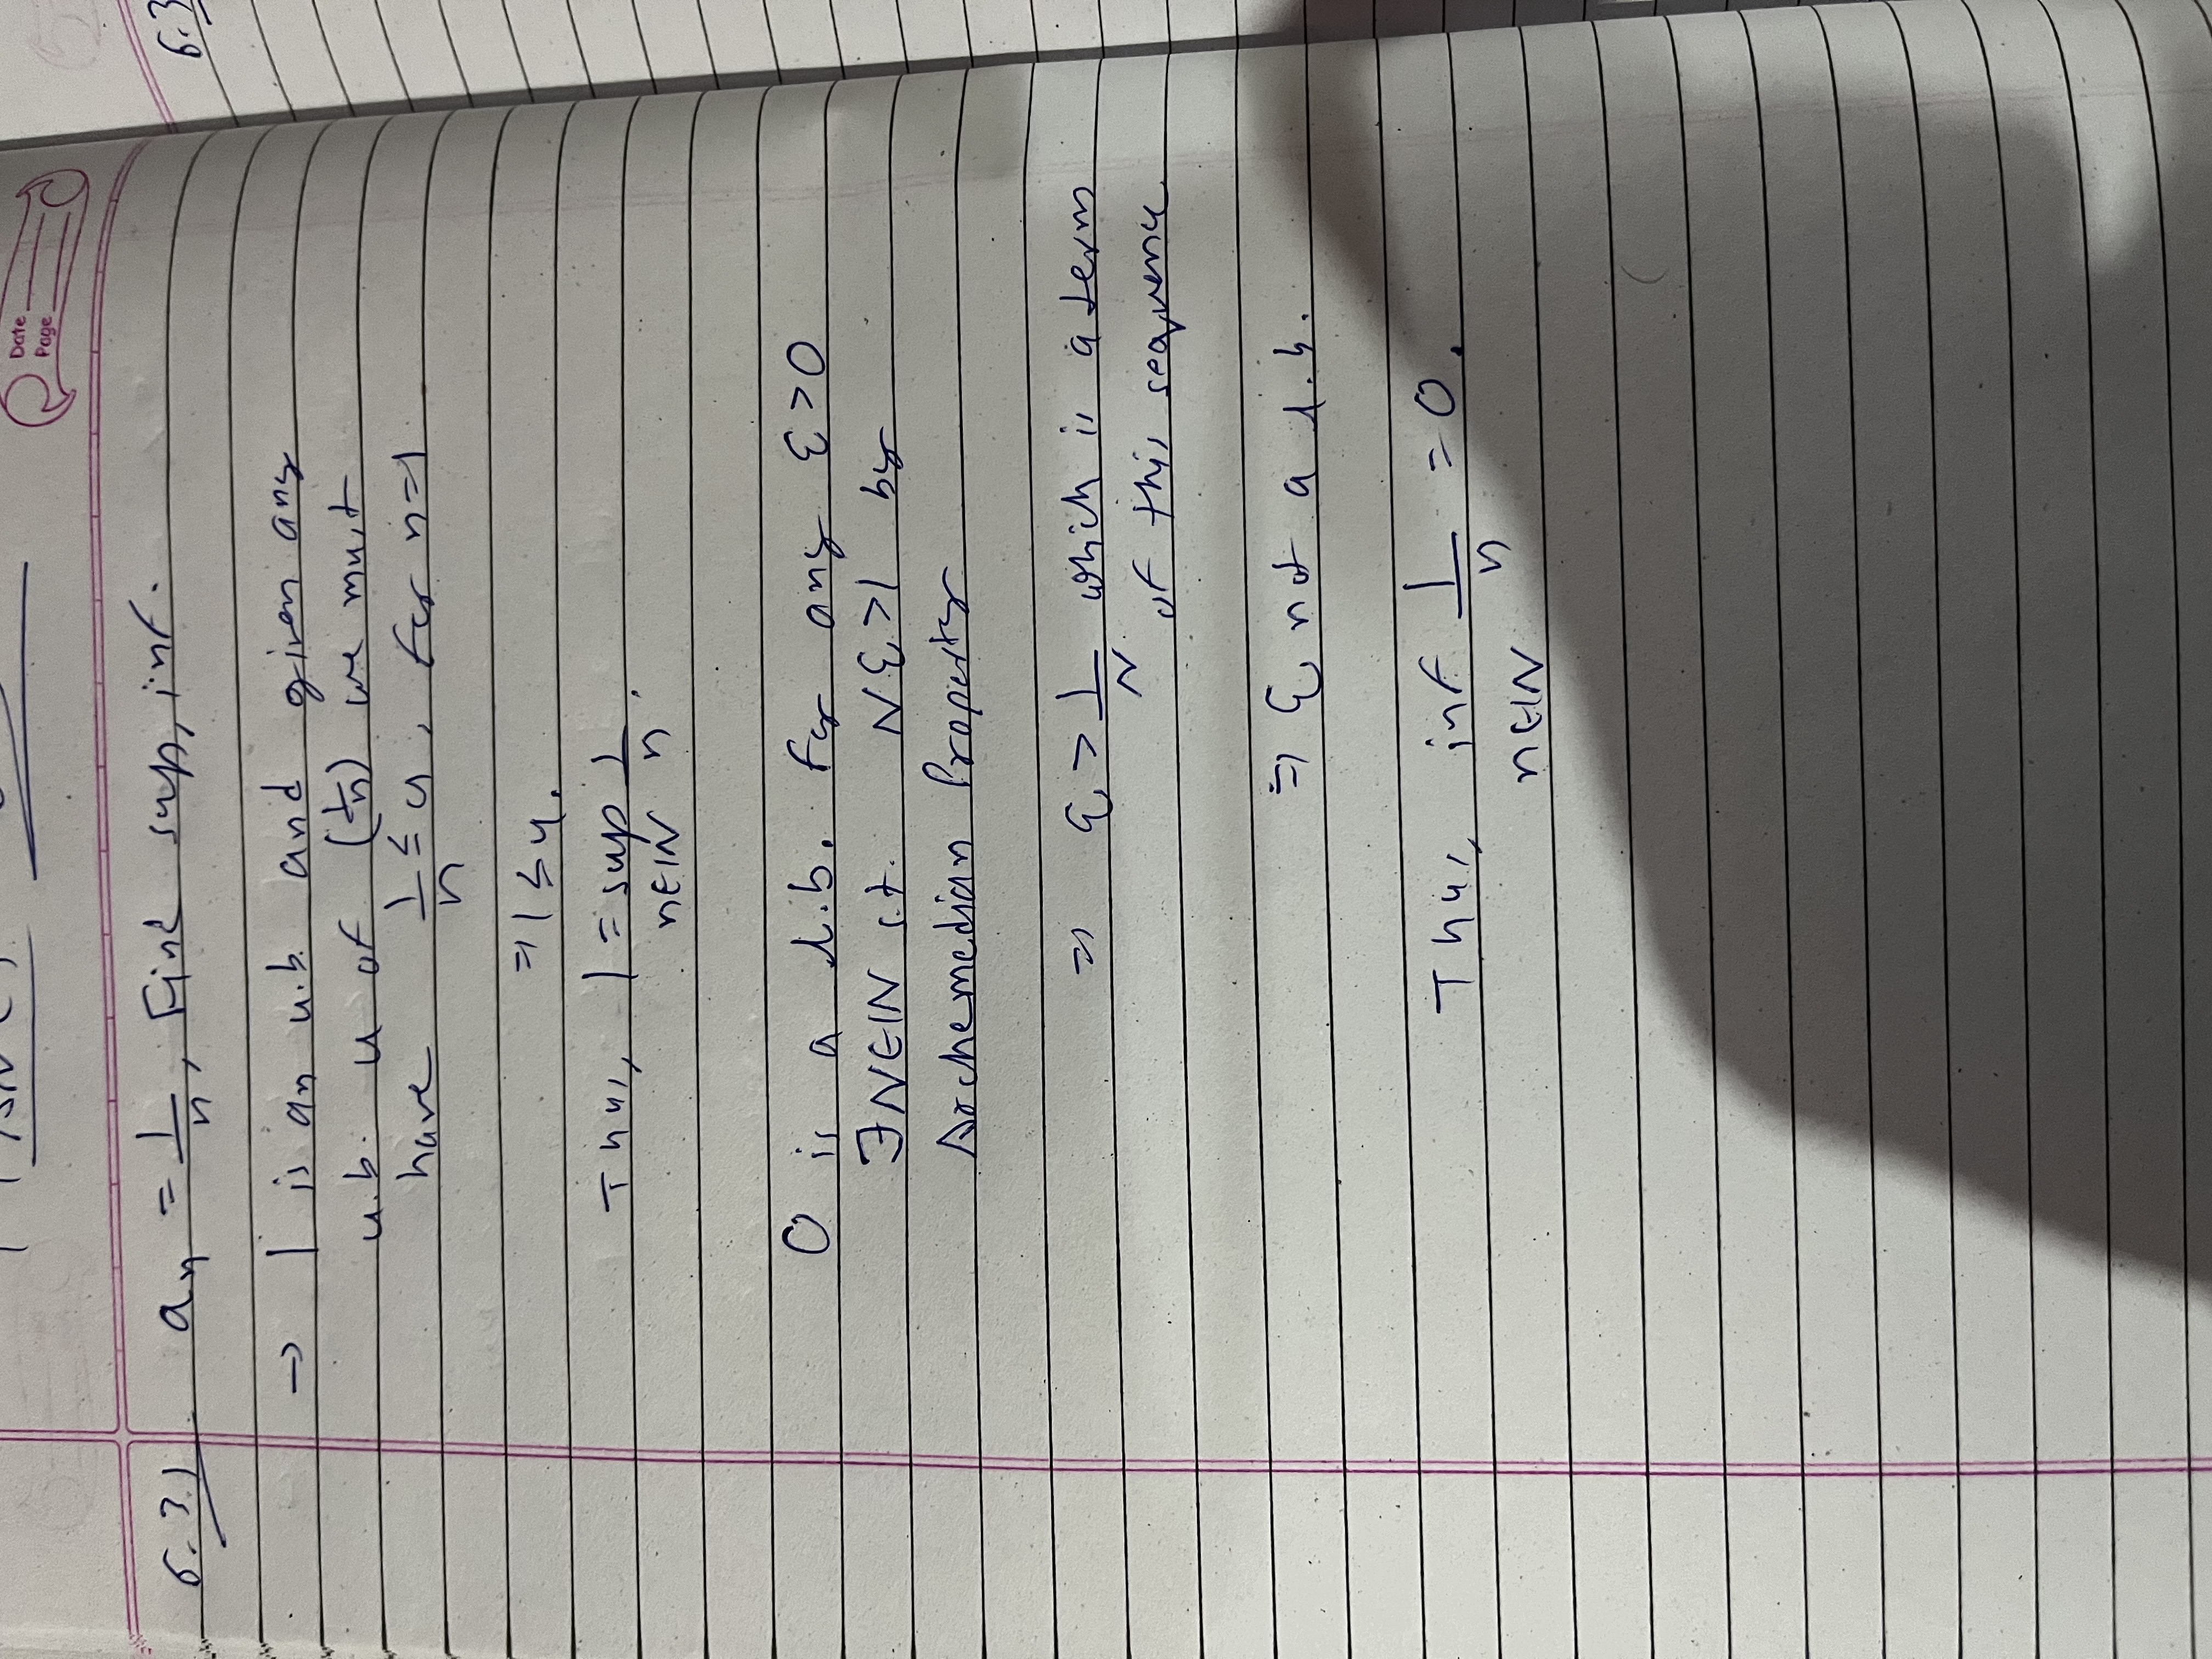 Date
Page
6.3.1. aₙ = 1/n, Find sup, inf.
→ 1 is an u.b. and given any
u.b. u of (1/n) we must
have 1/n ≤ u, for n=1
⇒ 1 ≤ u.
Thus, 1 = sup 1/n.
n∈ℕ
0 is a l.b. for any ε>0
∃N∈ℕ s.t. Nε>1 by
Archemedian Property
⇒ ε > 1/N which is a term
of this sequence
⇒ ε not a l.b.
Thus, inf 1/n = 0.
n∈ℕ
6.3